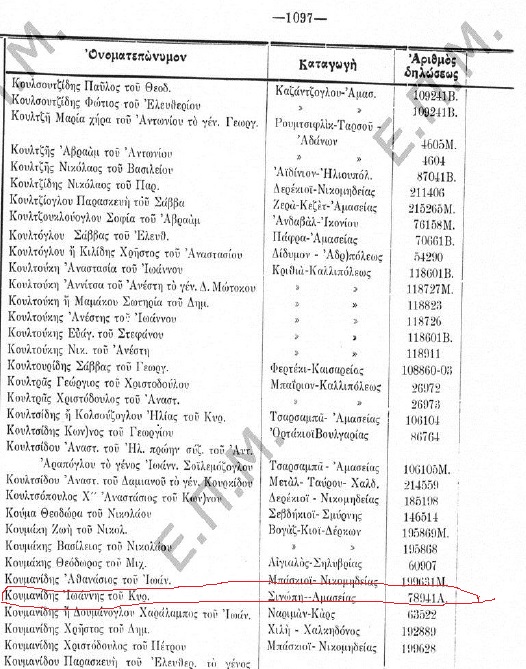 —1097—
Ὀνοματεπώνυμον Καταγωγὴ Ἀριθμὸς δηλώσεως
Κουλσουτζίδης Παῦλος τοῦ Θεοδ. Καζάντζογλου-Ἀμασ. 109241Β.
Κουλσουτζίδης Φώτιος τοῦ Ἐλευθερίου » » 109241Β.
Κουλτζῆ Μαρία χήρα τοῦ Ἀντωνίου τὸ γέν. Γεωργ. Ρουμτσιφλὶκ-Ταρσοῦ-
Ἀδάνων 4605Μ.
Κουλτζῆς Ἀβραὰμ τοῦ Ἀντωνίου » » 4604
Κουλτζῆς Νικόλαος τοῦ Βασιλείου Ἀϊδίνιον-Ἡλιουπόλ. 87041Β.
Κουλτζίδης Νικόλαος τοῦ Παρ. Δερέκιοϊ-Νικομηδείας 211406
Κουλτζίογλου Παρασκευὴ τοῦ Σάββα Ζερὰ-Κεζὲτ-Ἀμασείας 215265Μ.
Κουλτζουκλούγλου Σοφία τοῦ Ἀβραὰμ Ἀνδαβάλ-Ἰκονίου 76158Μ.
Κουλτόγλου Σάββας τοῦ Ἐλευθ. Πάφρα-Ἀμασείας 70661Β.
Κουλτόγλου ἢ Κιλίδης Χρῆστος τοῦ Ἀναστασίου Δίδυμον-(Ἀδρ)πόλεως 54290
Κουλτούκη Ἀναστασία τοῦ Ἰωάννου Κριθιὰ-Καλλιπόλεως 118601Β.
Κουλτούκη Ἀννίτσα τοῦ Ἀνέστη τὸ γέν. Δ. Μώτοκου » » 118727Μ.
Κουλτούκη ἢ Μαμάκου Σωτηρία τοῦ Δημ. » » 118823
Κουλτούκης Ἀνέστης τοῦ Ἰωάννου » » 118726
Κουλτούκης Εὐάγ. τοῦ Στεφάνου » » 118601Β.
Κουλτούκης Νικ. τοῦ Ἀνέστη » » 118911
Κουλτουρίδης Σάββας τοῦ Γεωργ. Φερτέκι-Καισαρείας 108860-03
Κουλτρᾶς Γεώργιος τοῦ Χριστοδούλου Μπαΐριον-Καλλιπόλεως 26972
Κουλτρᾶς Χριστόδουλος τοῦ Ἀναστ. » » 26973
Κουλτσίδης ἢ Κολσούζογλου Ἠλίας τοῦ Κυρ. Τσαρσαμπᾶ-Ἀμασείας 106104
Κουλτσίδης Κων)νος τοῦ Γεωργίου ὈρτάκιοϊΒουλγαρίας 86764
Κουλτσίδου Ἀναστ. τοῦ Ἠλ. πρώην συζ. τοῦ Ἀντ.
Ἀραπόγλου τὸ γένος Ἰωάνν. Σοϊλεμόζογλου Τσαρσαμπᾶ-Ἀμασείας 106105Μ.
Κουλτσίδου Ἀναστ. τοῦ Δαμιανοῦ τὸ γέν. Κουρκίδου Μετὰλ-Ταύρου-Χαλδ. 214559
Κουλτσόπουλος Χ" Ἀναστάσιος τοῦ Κων)νου Δερέκιοϊ-Νικομηδείας 185198
Κούμα Θεοδώρα τοῦ Νικολάου Σεβδήκιοϊ-Σμύρνης 146514
Κουμάκη Ζωὴ τοῦ Νικολ. Βογάζ-Κιοϊ-Δέρκων 195869Μ.
Κουμάκης Βασίλειος τοῦ Νικολάου » » 195868
Κουμάκης Θεόδωρος τοῦ Μιχ. Αἰγιαλός-Σηλυβρίας 60907
Κουμανίδης Ἀθανάσιος τοῦ Ἰωάν. Μπάσκιοϊ-Νικομηδείας 199631Μ.
Κουμανίδης Ἰωάννης τοῦ Κυρ. Σινώπη-Ἀμασείας 78941Α.
Κουμανίδης ἢ Δουμάνογλου Χαράλαμπος τοῦ Ἰωάν. Ναριμὰν-Κὰρς 63522
Κουμανίδης Χρῆστος τοῦ Δημ. Χιλὴ-Χαλκηδόνος 192889
Κουμανίδης Χριστόδουλος τοῦ Πέτρου Μπάσκιοϊ-Νικομηδείας 199628
Κουμανίδου Παρασκευὴ τοῦ Ἐλευθερ. τὸ γένος
Ε.Π.Μ.
Ε.Π.Μ.
Ι.Μ.